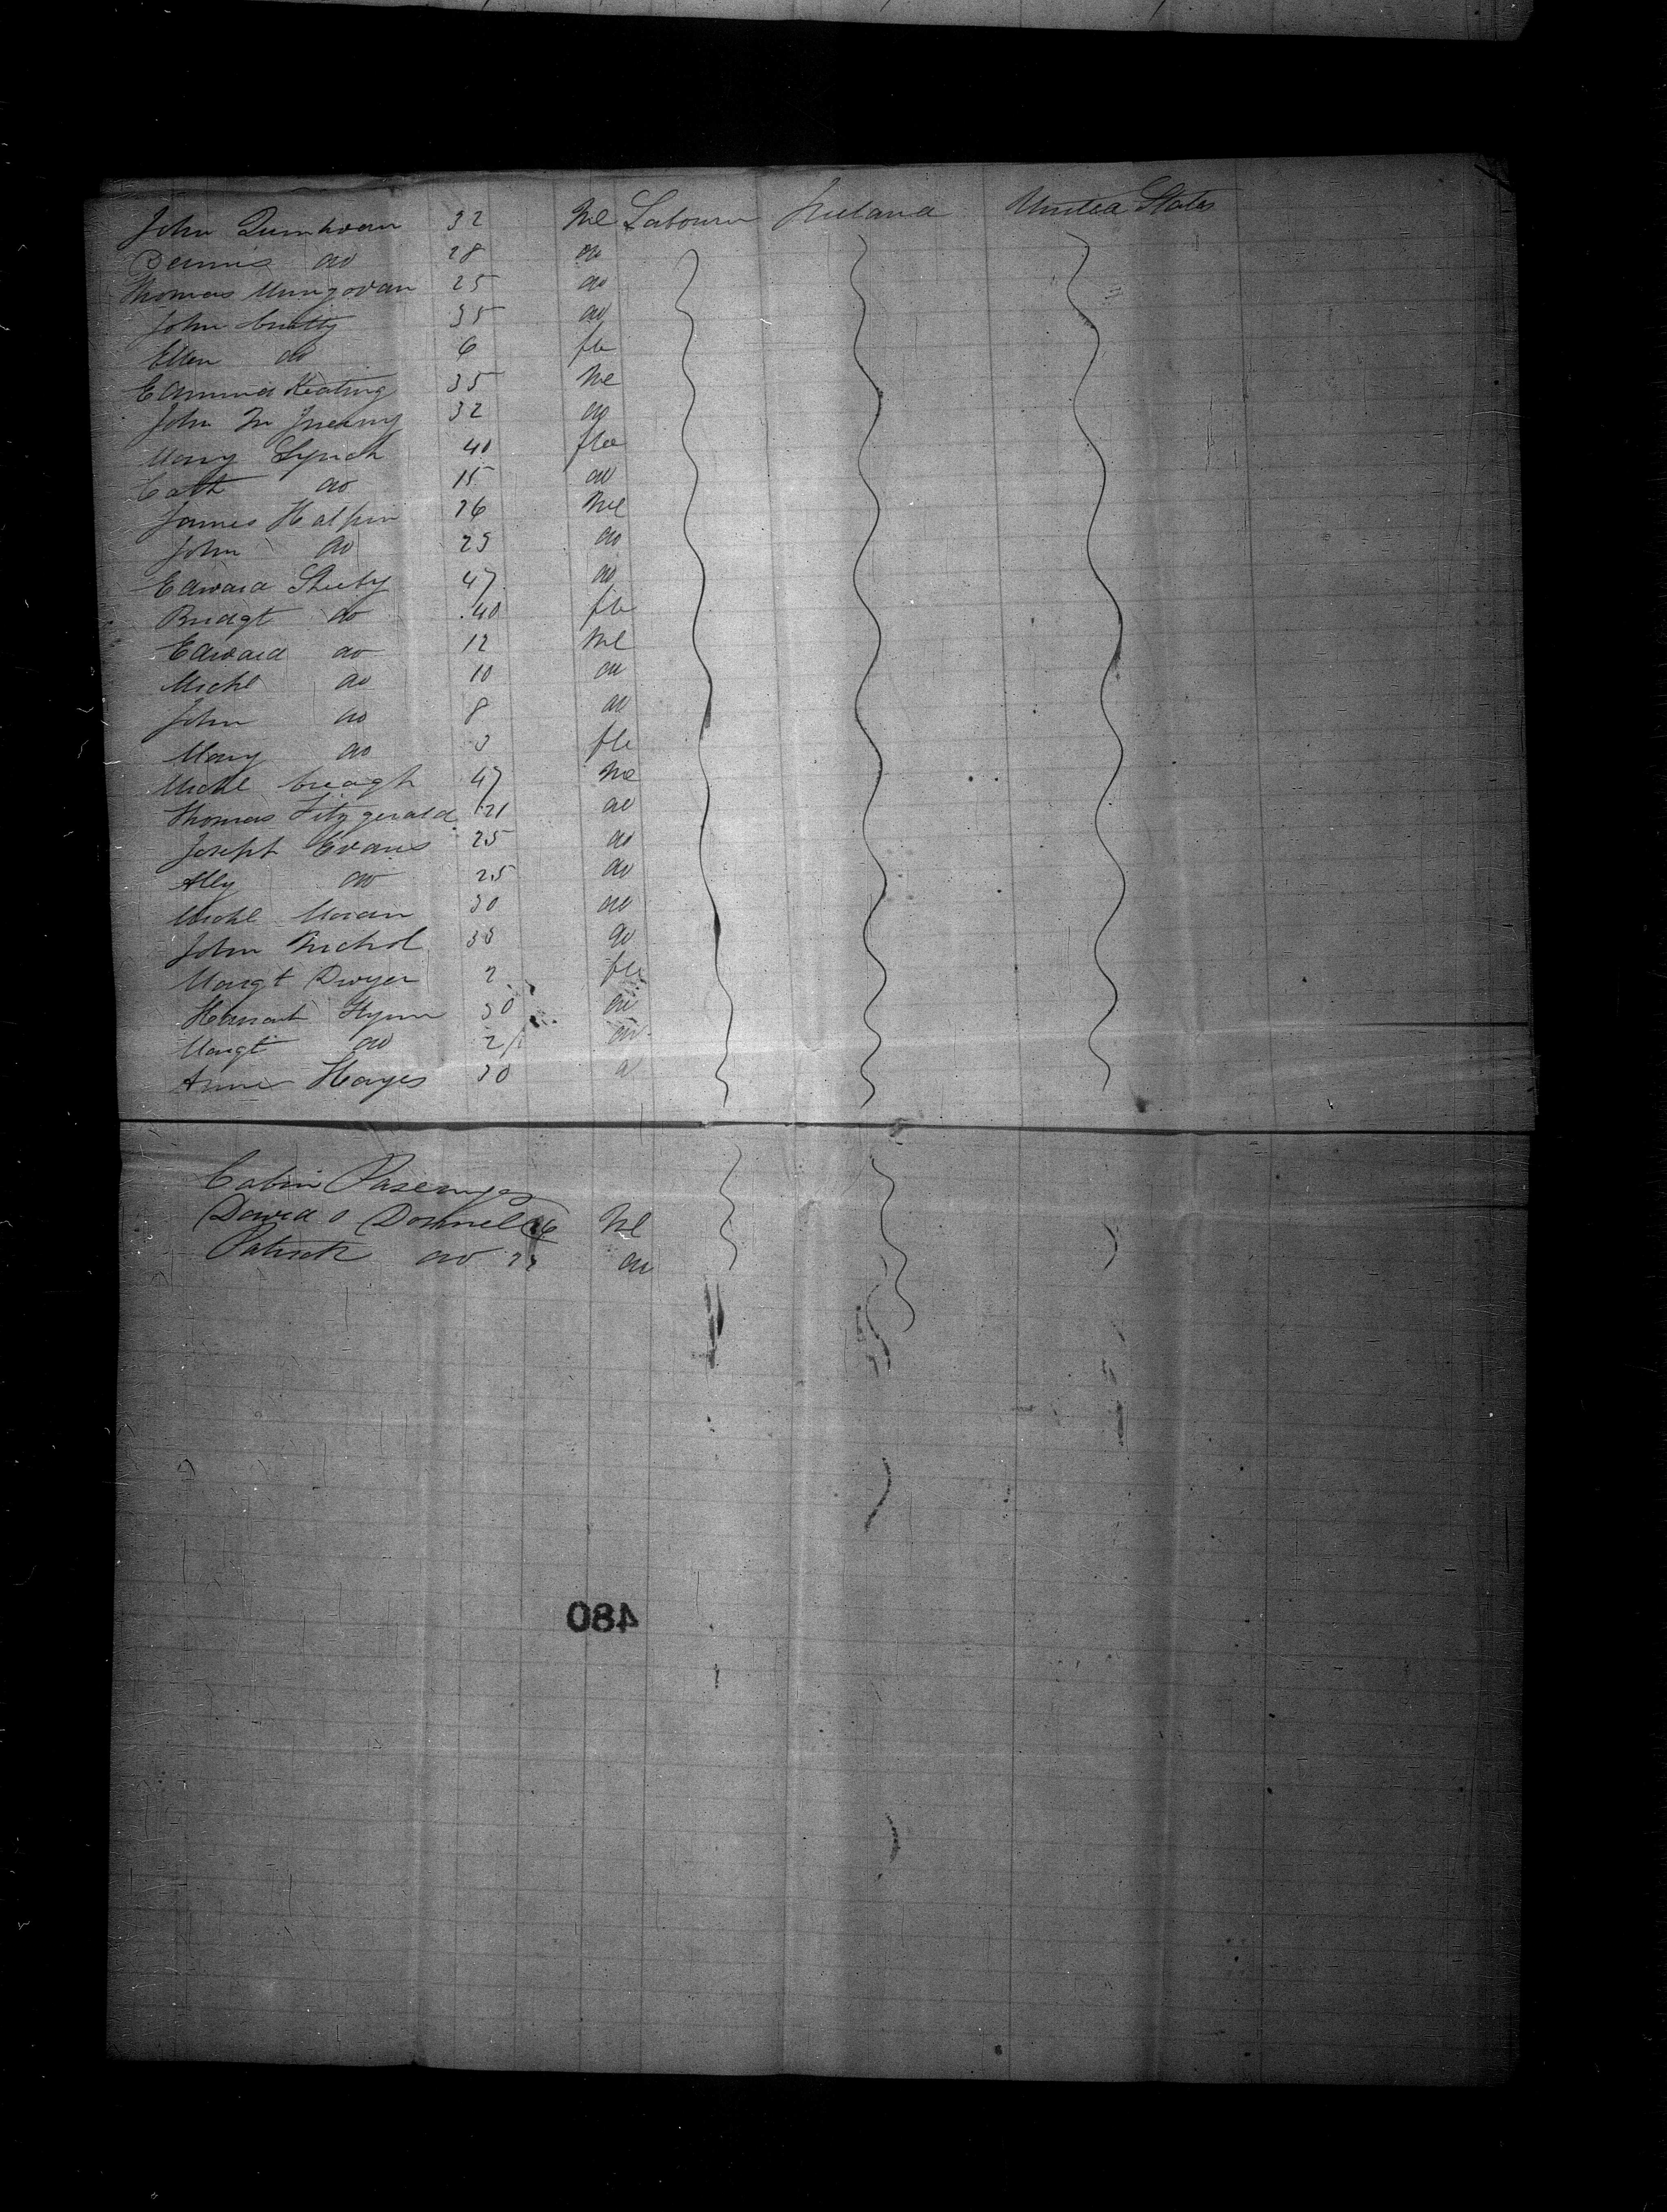 John 32 Me Labourer Ireland United States
Dennis do 28 do
Thomas Mungovan 25 do
John 35 do
Ellen do 6 fle
Edmund Keating 35 Me
John Mc 32 do
Mary Lynch 40 fle
Cath do 15 do
James Halpin 26 Me
John do 25 do
Edward Sheehy 47 do
Bridgt do 40 fle
Edward do 12 Me
Michl do 10 do
John do 8 do
Mary do 3 fle
Michl Creagh 47 Me
Thomas Fitzgerald 21 do
Joseph Evans 25 do
Ally do 25 do
Michl Moran 30 do
John Nichol 35 do
Margt Dwyer 2 fle
Hanah Flynn 30 do
Margt do 2 do
Anne Hayes 30 d
Cabin Pasenges
David O Donnell 26 Me
Patrick do 23 do
480